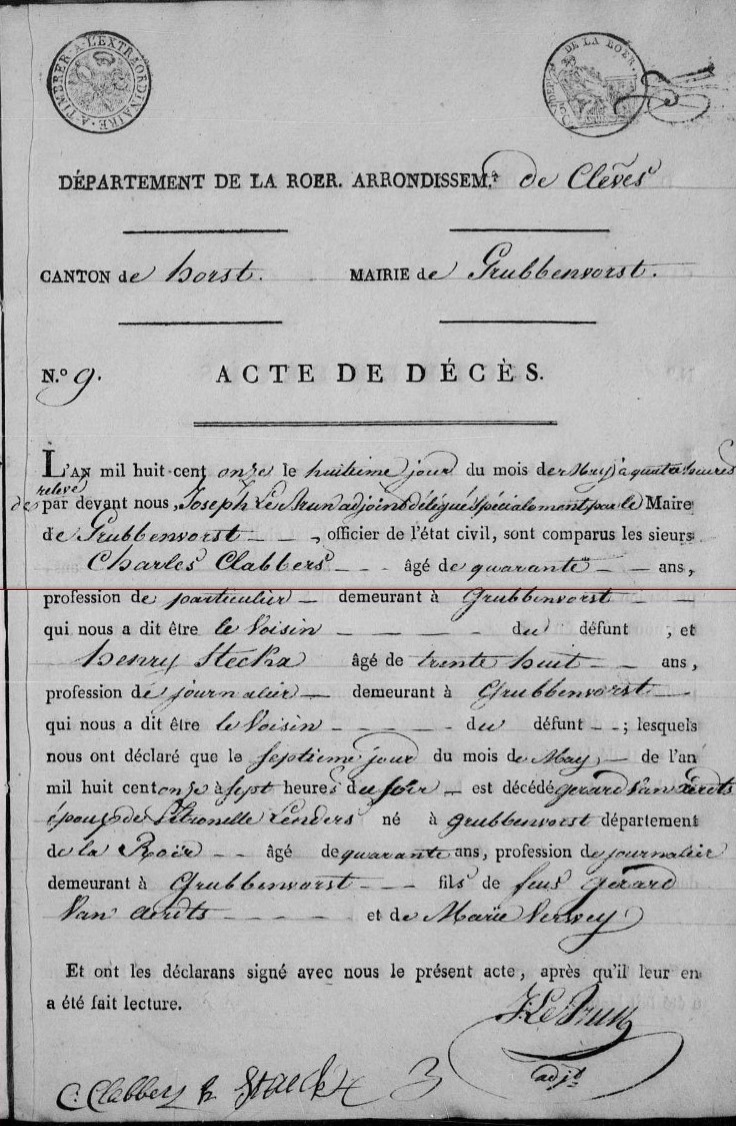 A TIMBRER A L'EXTRAORDINAIRE
DE LA ROER.
DÉPARTEMENT DE LA ROER. ARRONDISSEM.t de Clêves
CANTON de horst. MAIRIE de Grubbenvorst.
N.º 9. ACTE DE DÉCÈS.
L'AN mil huit cent onze le huitieme jour du mois de May, a quatre heures
de relevé par devant nous, Joseph Le Brun adjoint délégué spécialement par le Maire
de Grubbenvorst - - -, officier de l'état civil, sont comparus les sieurs
Charles Clabbers - - - âgé de quarante - - ans,
profession de particulier - demeurant à Grubbenvorst - -
qui nous a dit être le Voisin - - - - du défunt ; et
henry Stecka âgé de trente huit - - ans,
profession de journalier - demeurant à Grubbenvorst -
qui nous a dit être le Voisin - - - - du défunt - - ; lesquels
nous ont déclaré que le septieme jour du mois de May, - de l'an
mil huit cent onze à sept heures du soir - est décédé gerard Van
époux de Petronelle Lenders né à grubbenvorst département
de la Roër - - âgé de quarante ans, profession de journalier
demeurant à Grubbenvorst - - - fils de feus gerard
Van - - - - et de Marie Vervey
Et ont les déclarans signé avec nous le présent acte, après qu'il leur en
a été fait lecture.
J. Le Brun
adjt
C. Clabbers h